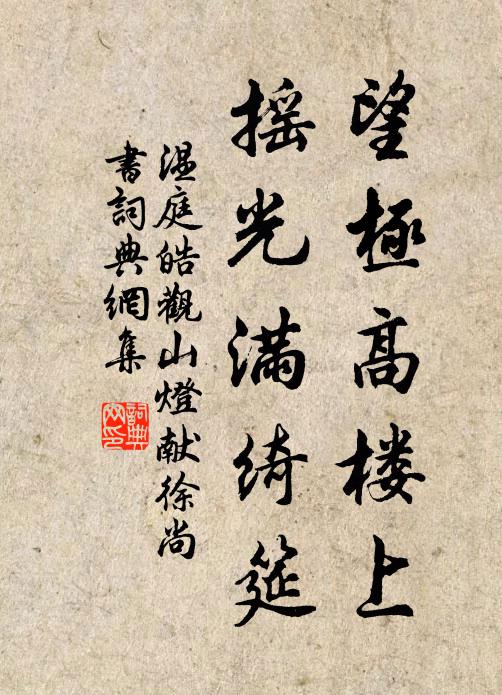 望極高楼上
摇光滿綺筵
温庭皓觀山燈献徐尚
書詞典網集
詞典
网印